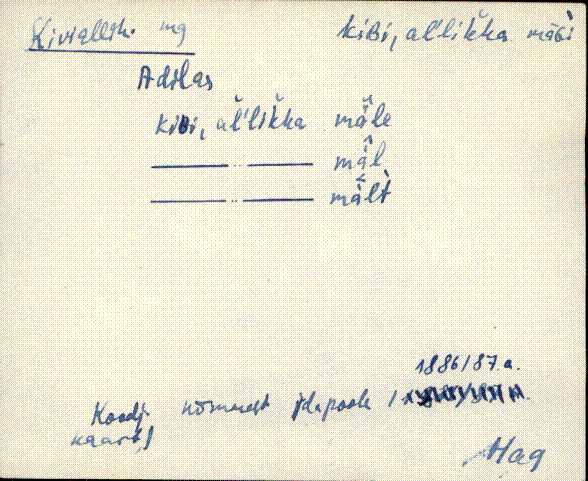 Kiviallik. mg kiBi, al'lik̆ka mäGì
Adilas
kiBi, ăl'lik̆ka mäle
——— „ ——— mäl
——— „ ——— mält
1886/87.a.
Koodj. nõmmest idapoole /
kaart,/
Mag